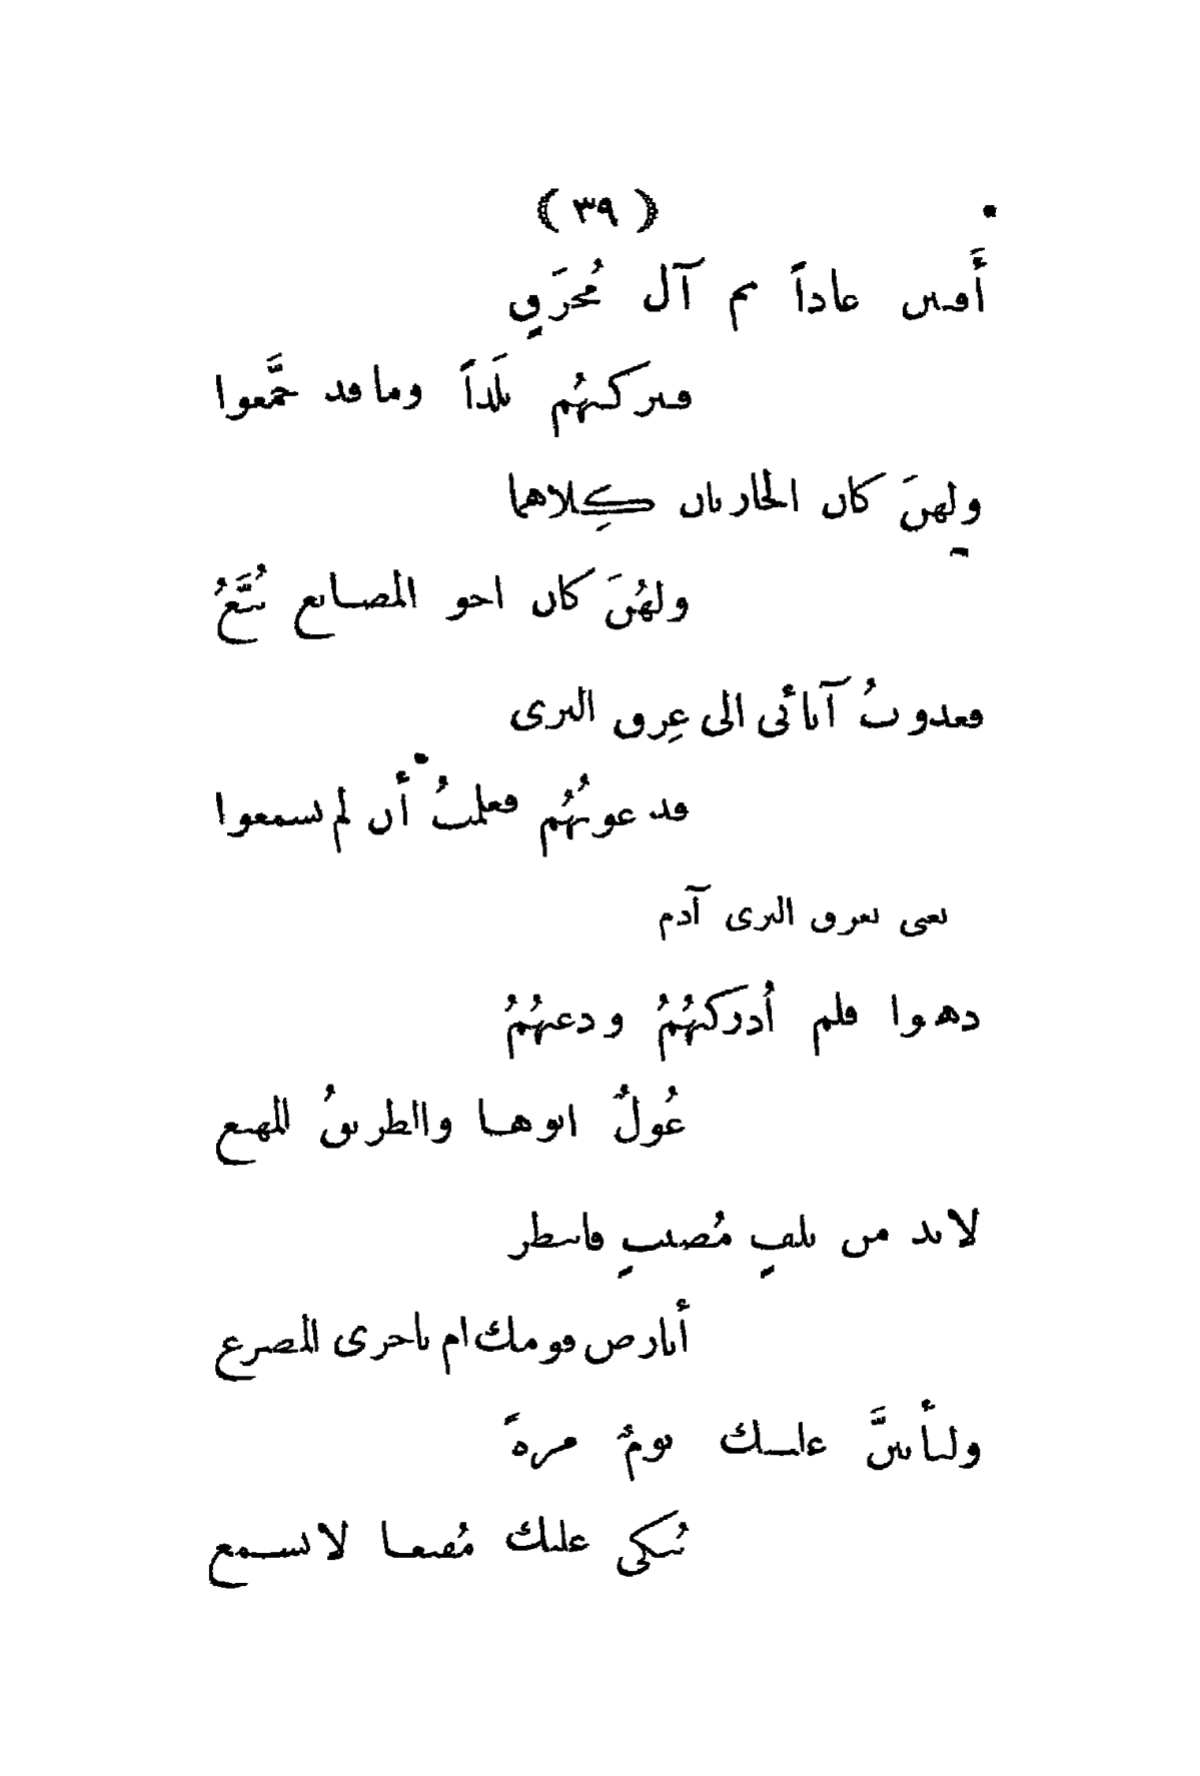 ﴿ ٣٩ ﴾
أَفنين عاداً ثم آل مُحرَقٍ
فتركنهُم بَلَداً وما قد جَمَّعوا
ولهنَ كان الحارثان كِلاهما
ولهُنَ كان اخو المصانع تُبَّعُ
فعددتُ آبائي الى عِرق الثرى
فدعوتُهُم فعلمتُ أن لم يسمعوا
يعني بعرق الثرى آدم
ذهبوا فلم أُدركهُمُ ودعتهُمُ
غُولٌ اتوها والطريقُ المهيع
لابد من تلفٍ مُصيبٍ فانتظر
أبارض قومك ام باخرى المصرع
وليأتينَّ عليك يومٌ مرةً
يُبكى عليك مُقنعا لاتسمع